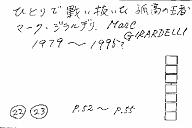 ひとりで戦い抜いた孤高の王者
マーク・ジラルデリ Marc GIRARDELLI
1979〜1995?
22 23 P.52〜P.55